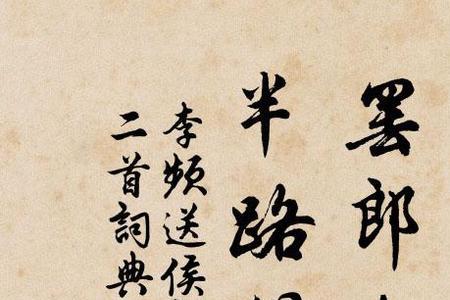 罢郎
半路
李频送侯
二首词典